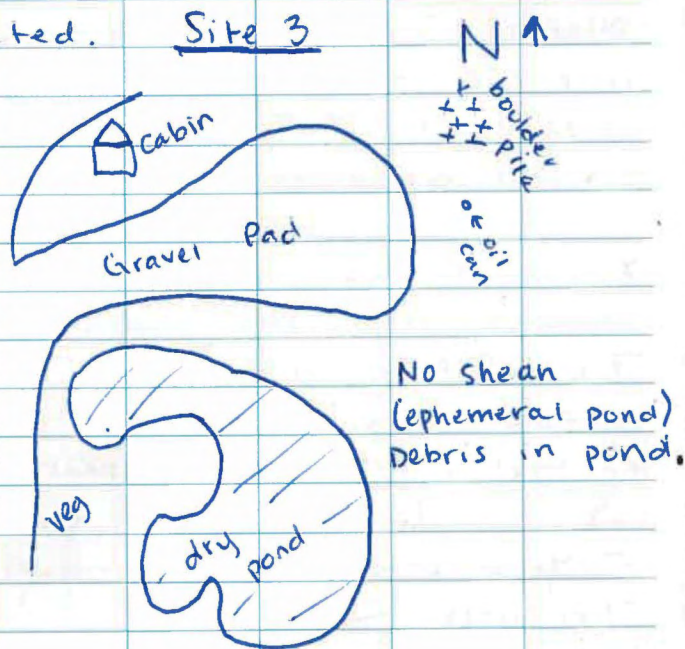 ted. Site 3
N
boulder
pile
cabin
Gravel Pad
oil
can
No shean
(ephemeral pond)
Debris in pond.
veg
dry pond